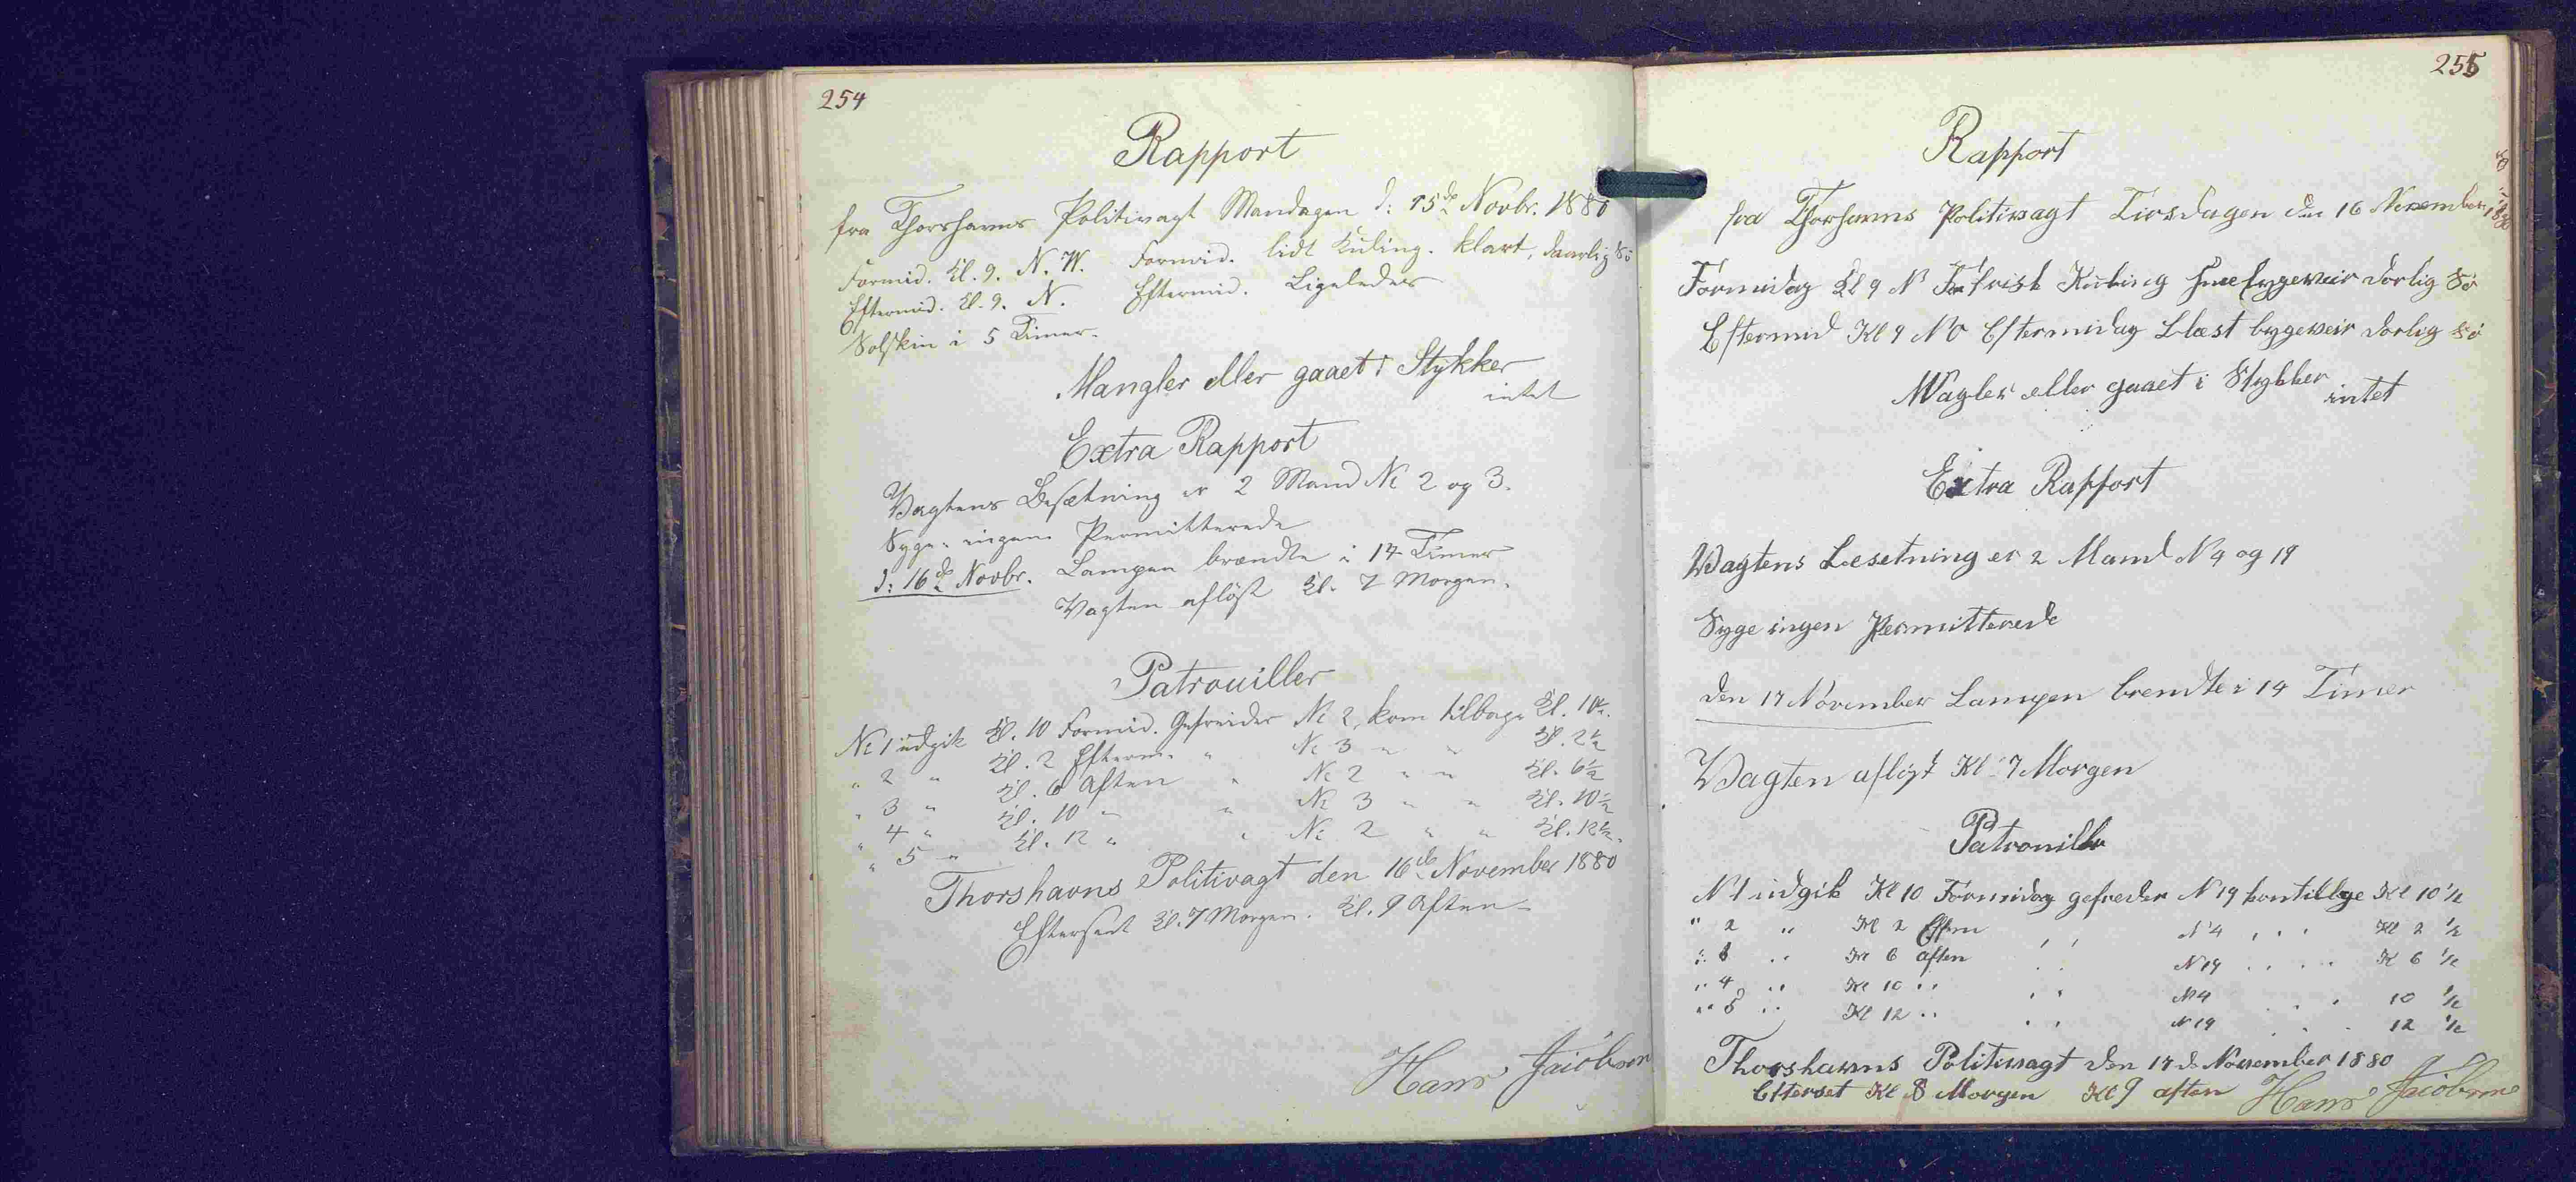 254
Rapport
fra Thorshavns Politivagt Mandagen d: 15de Novbr. 1880
Formid. Kl. 9. N. W. Formid. lidt Kuling. klart, daarlig Sö
Eftermid. Kl. 9. N. Eftermid. Ligeledes
Solskin i 5 Timer.
Mangler eller gaaet i Stykker
intet
Extra Rapport
Vagtens Besætning er 2 Mand No 2 og 3.
Syge ingen Permitterede
d: 16de Novbr. Lampen brændte i 14 Timer
Vagten aflöst Kl. 7 Morgen.
Patrouiller
No 1 udgik Kl. 10 Formid. Gefreider No 2, kom tilbage Kl. 10½.
" 2 " Kl. 2 Efterm. " No 3 " " Kl. 2½
" 3 " Kl. 6 Aften " No 2 " " Kl. 6½
" 4 " Kl. 10 " " No 3 " " Kl. 10½
" 5 " Kl. 12 " " No 2 " " Kl. 12½.
Thorshavns Politivagt den 16de November 1880
Efterseet Kl. 7 Morgen. Kl. 9 Aften
Hans Jacobsen
255
Rapport
fra Thorshavns Politivagt Tirsdagen den 16 November 1880
Formidag Kl 9 N frisk Kuling Snee bygeveir dorlig Sö
Eftermid Kl 9 NO Eftermidag Blæst bygeveir dorlig Sö
Magler eller gaaet i Stykker
intet
Extra Rapport
Vagtens Besetning er 2 Mand N 4 og 19
Syge ingen Permitterede
den 17 November Lampen brendte i 14 Timer
Vagten aflöst Kl 7 Morgen
Patrouiller
N 1 udgik Kl 10 Formidag gefreder N 19 komtillge Kl 10 ½
" 2 " Kl 2 Efterm " " N 4 " " " Kl 2 ½
" 3 " Kl 6 aften " " N 19 " " " Kl 6 ½
" 4 " Kl 10 " " " N 4 " " 10 ½
" 5 " Kl 12 " " " N 19 " " " 12 ½
Thorshavns Politivagt den 17 de November 1880
Efterset Kl 8 Morgen Kl 9 aften Hans Jacobsen